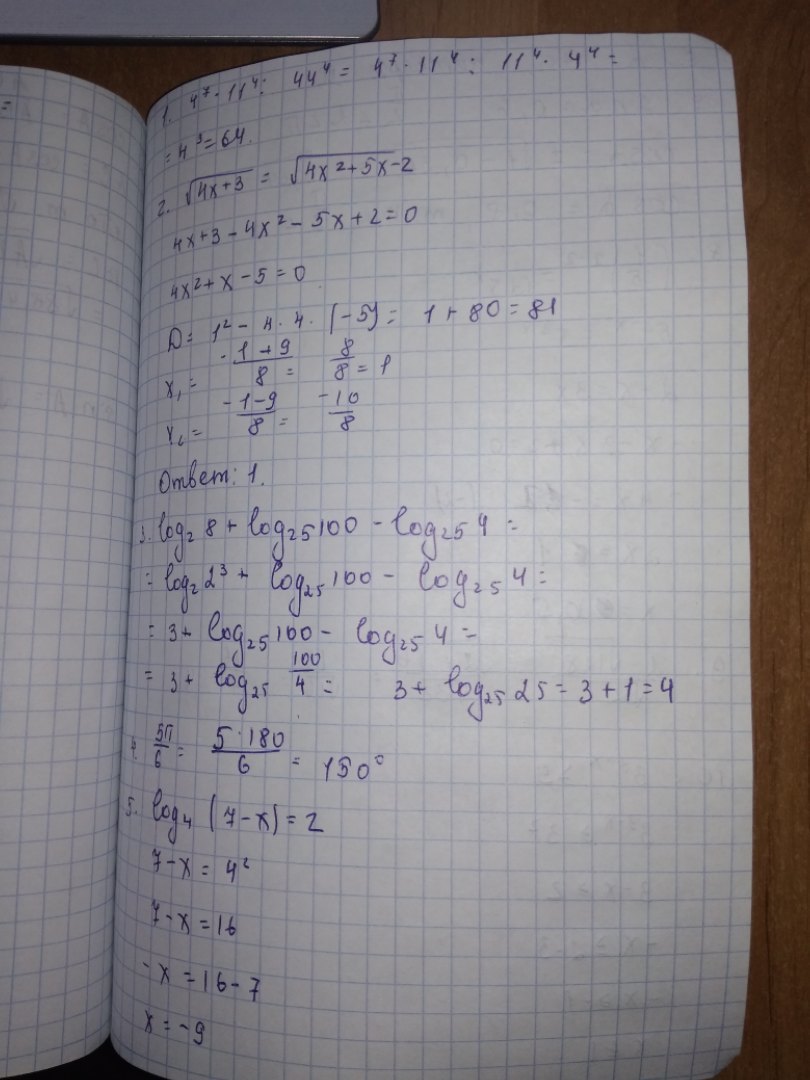 1. 4⁷ · 11⁴ : 44⁴ = 4⁷ · 11⁴ : 11⁴ · 4⁴ =
= 4³ = 64.
2. √(4x+3) = √(4x²+5x-2)
4x+3-4x²-5x+2=0
4x²+x-5=0
D = 1² - 4 · 4 · (-5) = 1 + 80 = 81
x₁ = (-1+9)/8 = 8/8 = 1
x₂ = (-1-9)/8 = -10/8
Ответ: 1.
3. log₂ 8 + log₂₅ 100 - log₂₅ 4 =
= log₂ 2³ + log₂₅ 100 - log₂₅ 4 =
= 3 + log₂₅ 100 - log₂₅ 4 =
= 3 + log₂₅ 100/4 = 3 + log₂₅ 25 = 3 + 1 = 4
4. 5π/6 = (5·180)/6 = 150°
5. log₄ (7-x) = 2
7-x = 4²
7-x = 16
-x = 16-7
x = -9